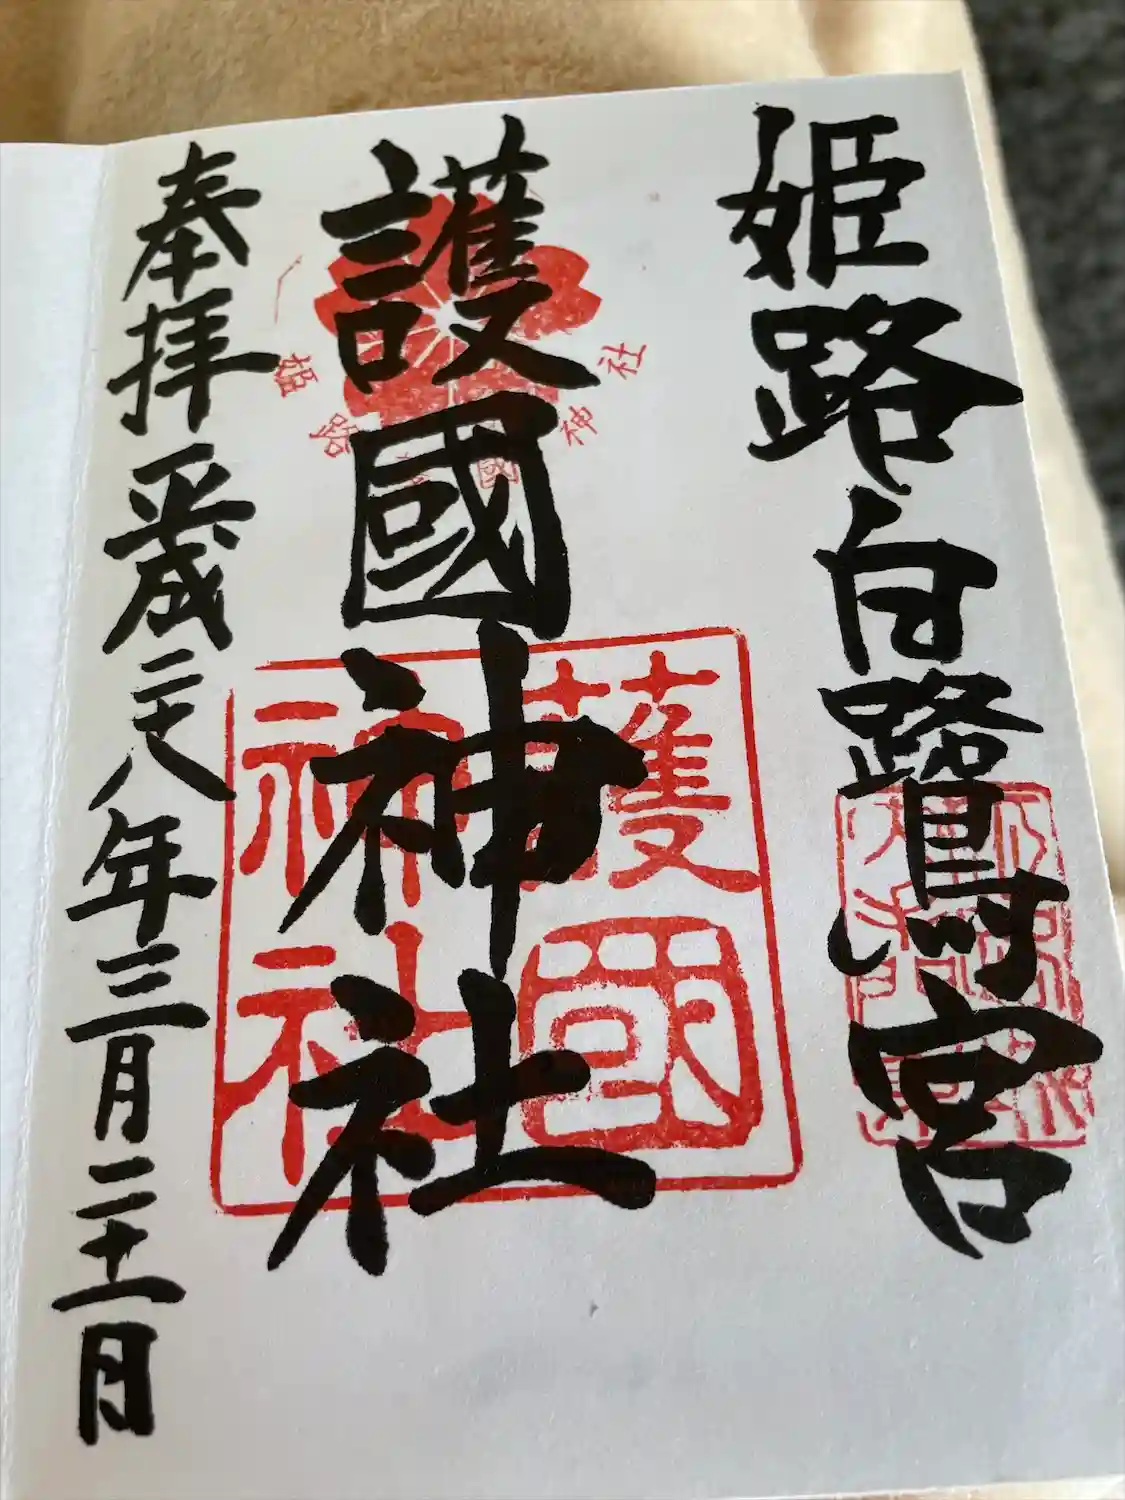 姫路白鷺宮
護國神社
奉拝 平成二十八年三月二十一日
姫路護國神社
護國
神社